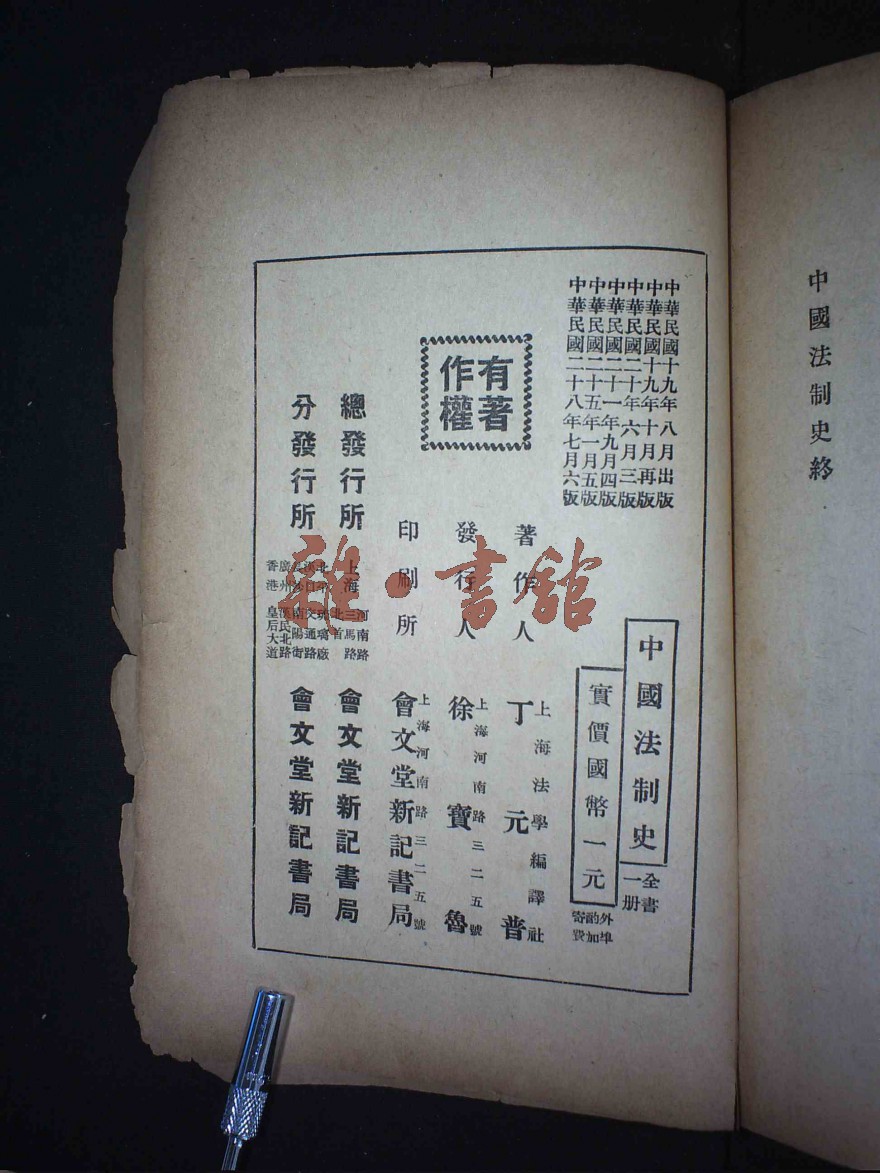 中國法制史終
中華民國十九年八月出版
中華民國十九年十月再版
中華民國二十年六月三版
中華民國二十一年九月四版
中華民國二十五年一月五版
中華民國二十八年七月六版
中國法制史
全書
一册
實價國幣一元
外埠
酌加
寄費
有著
作權
著作人
上海法學編譯社
丁元普
發行人
上海河南路三二五號
徐寶魯
印刷所
上海河南路三二五號
會文堂新記書局
總發行所
上海
河南路
三馬路
北首
會文堂新記書局
分發行所
北平琉璃廠
漢口交通路
長沙南陽街
廣州漢民北路
香港皇后大道
會文堂新記書局
雜·書館